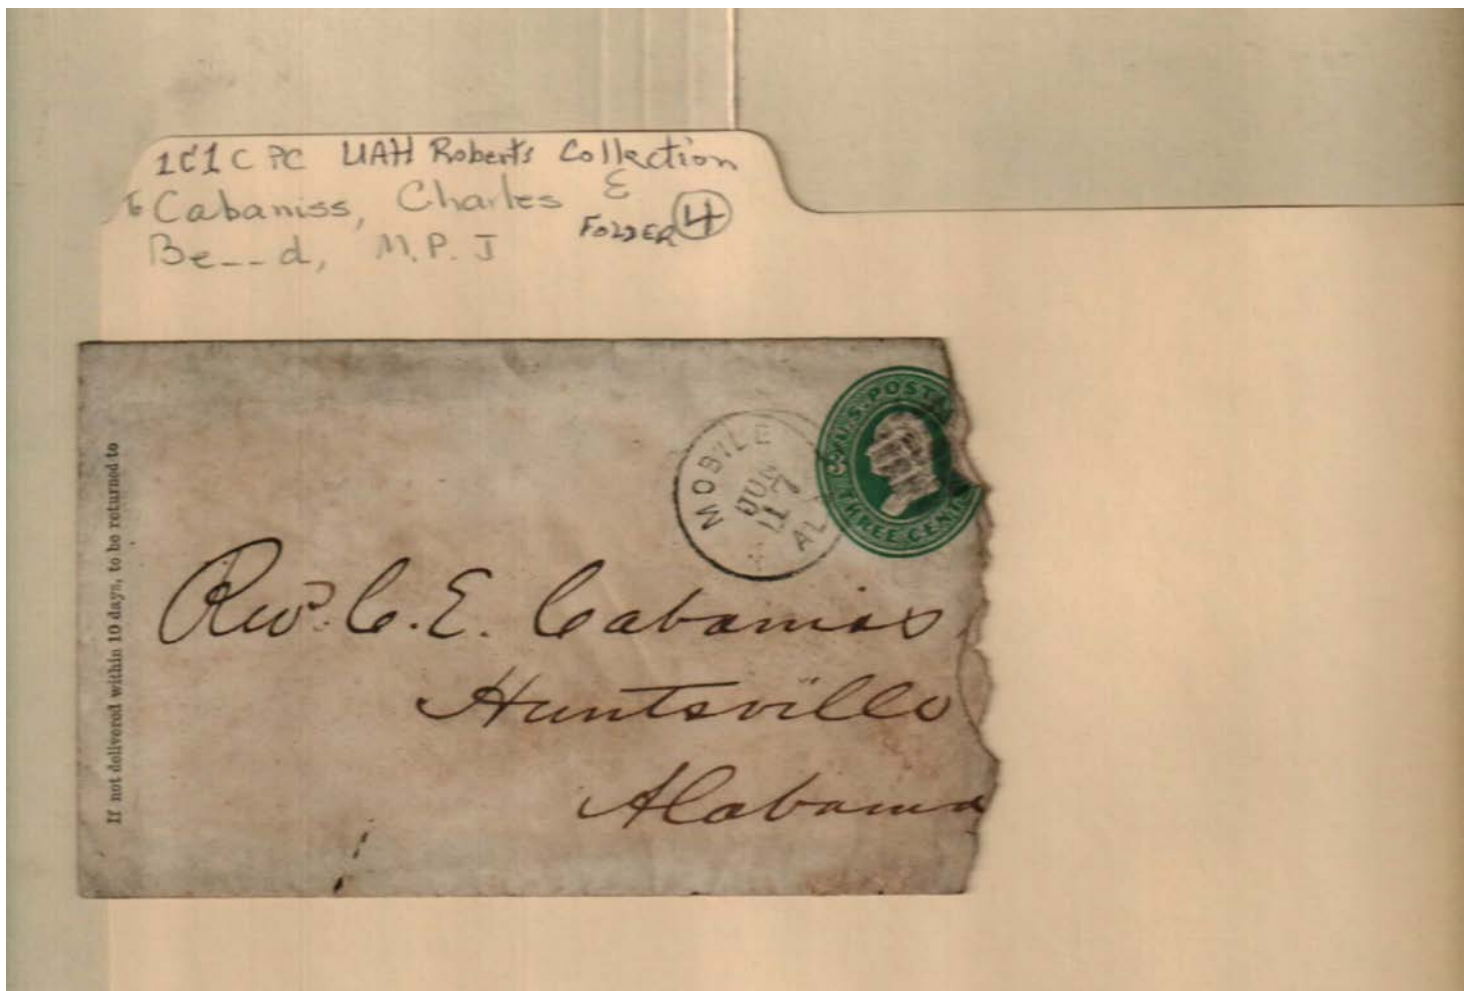 1C1 C PC UAH Roberts Collection
To Cabaniss, Charles E
FOLDER 4
Be__d, M.P.J
If not delivered within 10 days, to be returned to
MOBILE
JUN
17
ALA
U.S. POSTA
THREE CENT
Rev. C. E. Cabaniss
Huntsville
Alabama